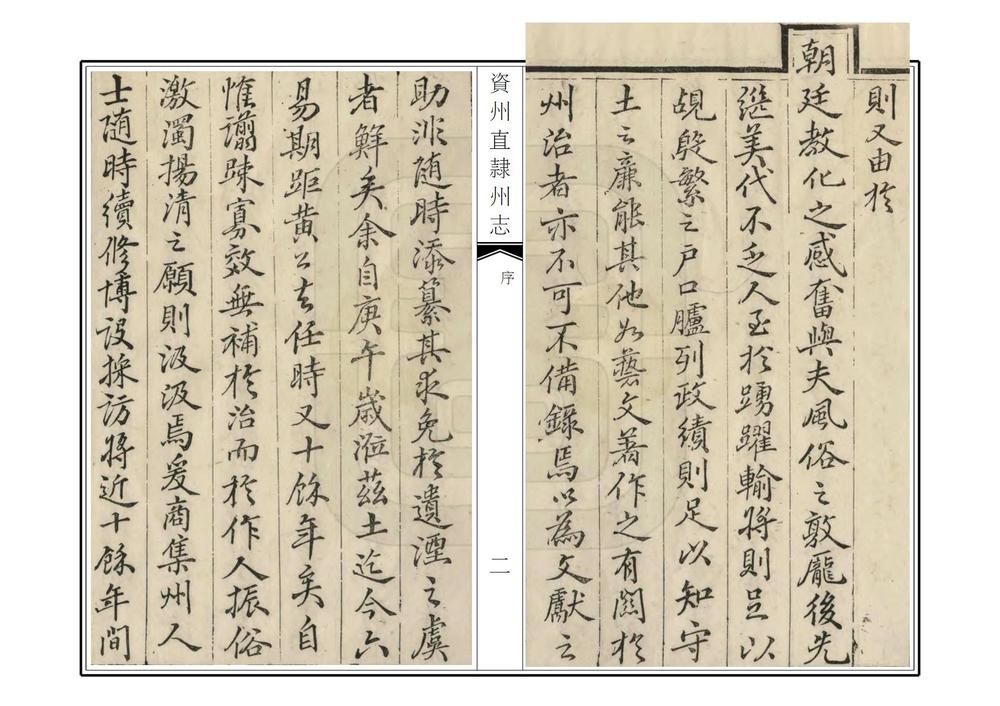 則又由於
朝廷教化之感奮與夫風俗之敦龐後先
繼美代不乏人至於踴躍輸將則足以
覘殷繁之戶口臚列政績則足以知守
土之廉能其他如藝文著作之有關於
州治者亦不可不備錄焉以為文獻之
資州直隸州志
序
二
助非隨時添纂其求免於遺湮之虞
者鮮矣余自庚午歲涖茲土迄今六
易期距黃公去任時又十餘年矣自
惟譾踈寡效無補於治而於作人振俗
激濁揚清之願則汲汲焉爰商集州人
士随時續修博設採訪將近十餘年間